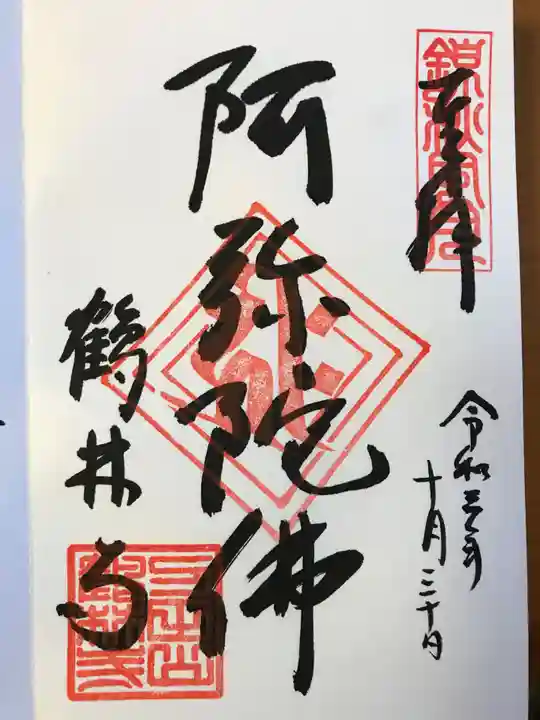 奉拝
令和三年
十月三十日
阿弥陀佛
鶴林寺